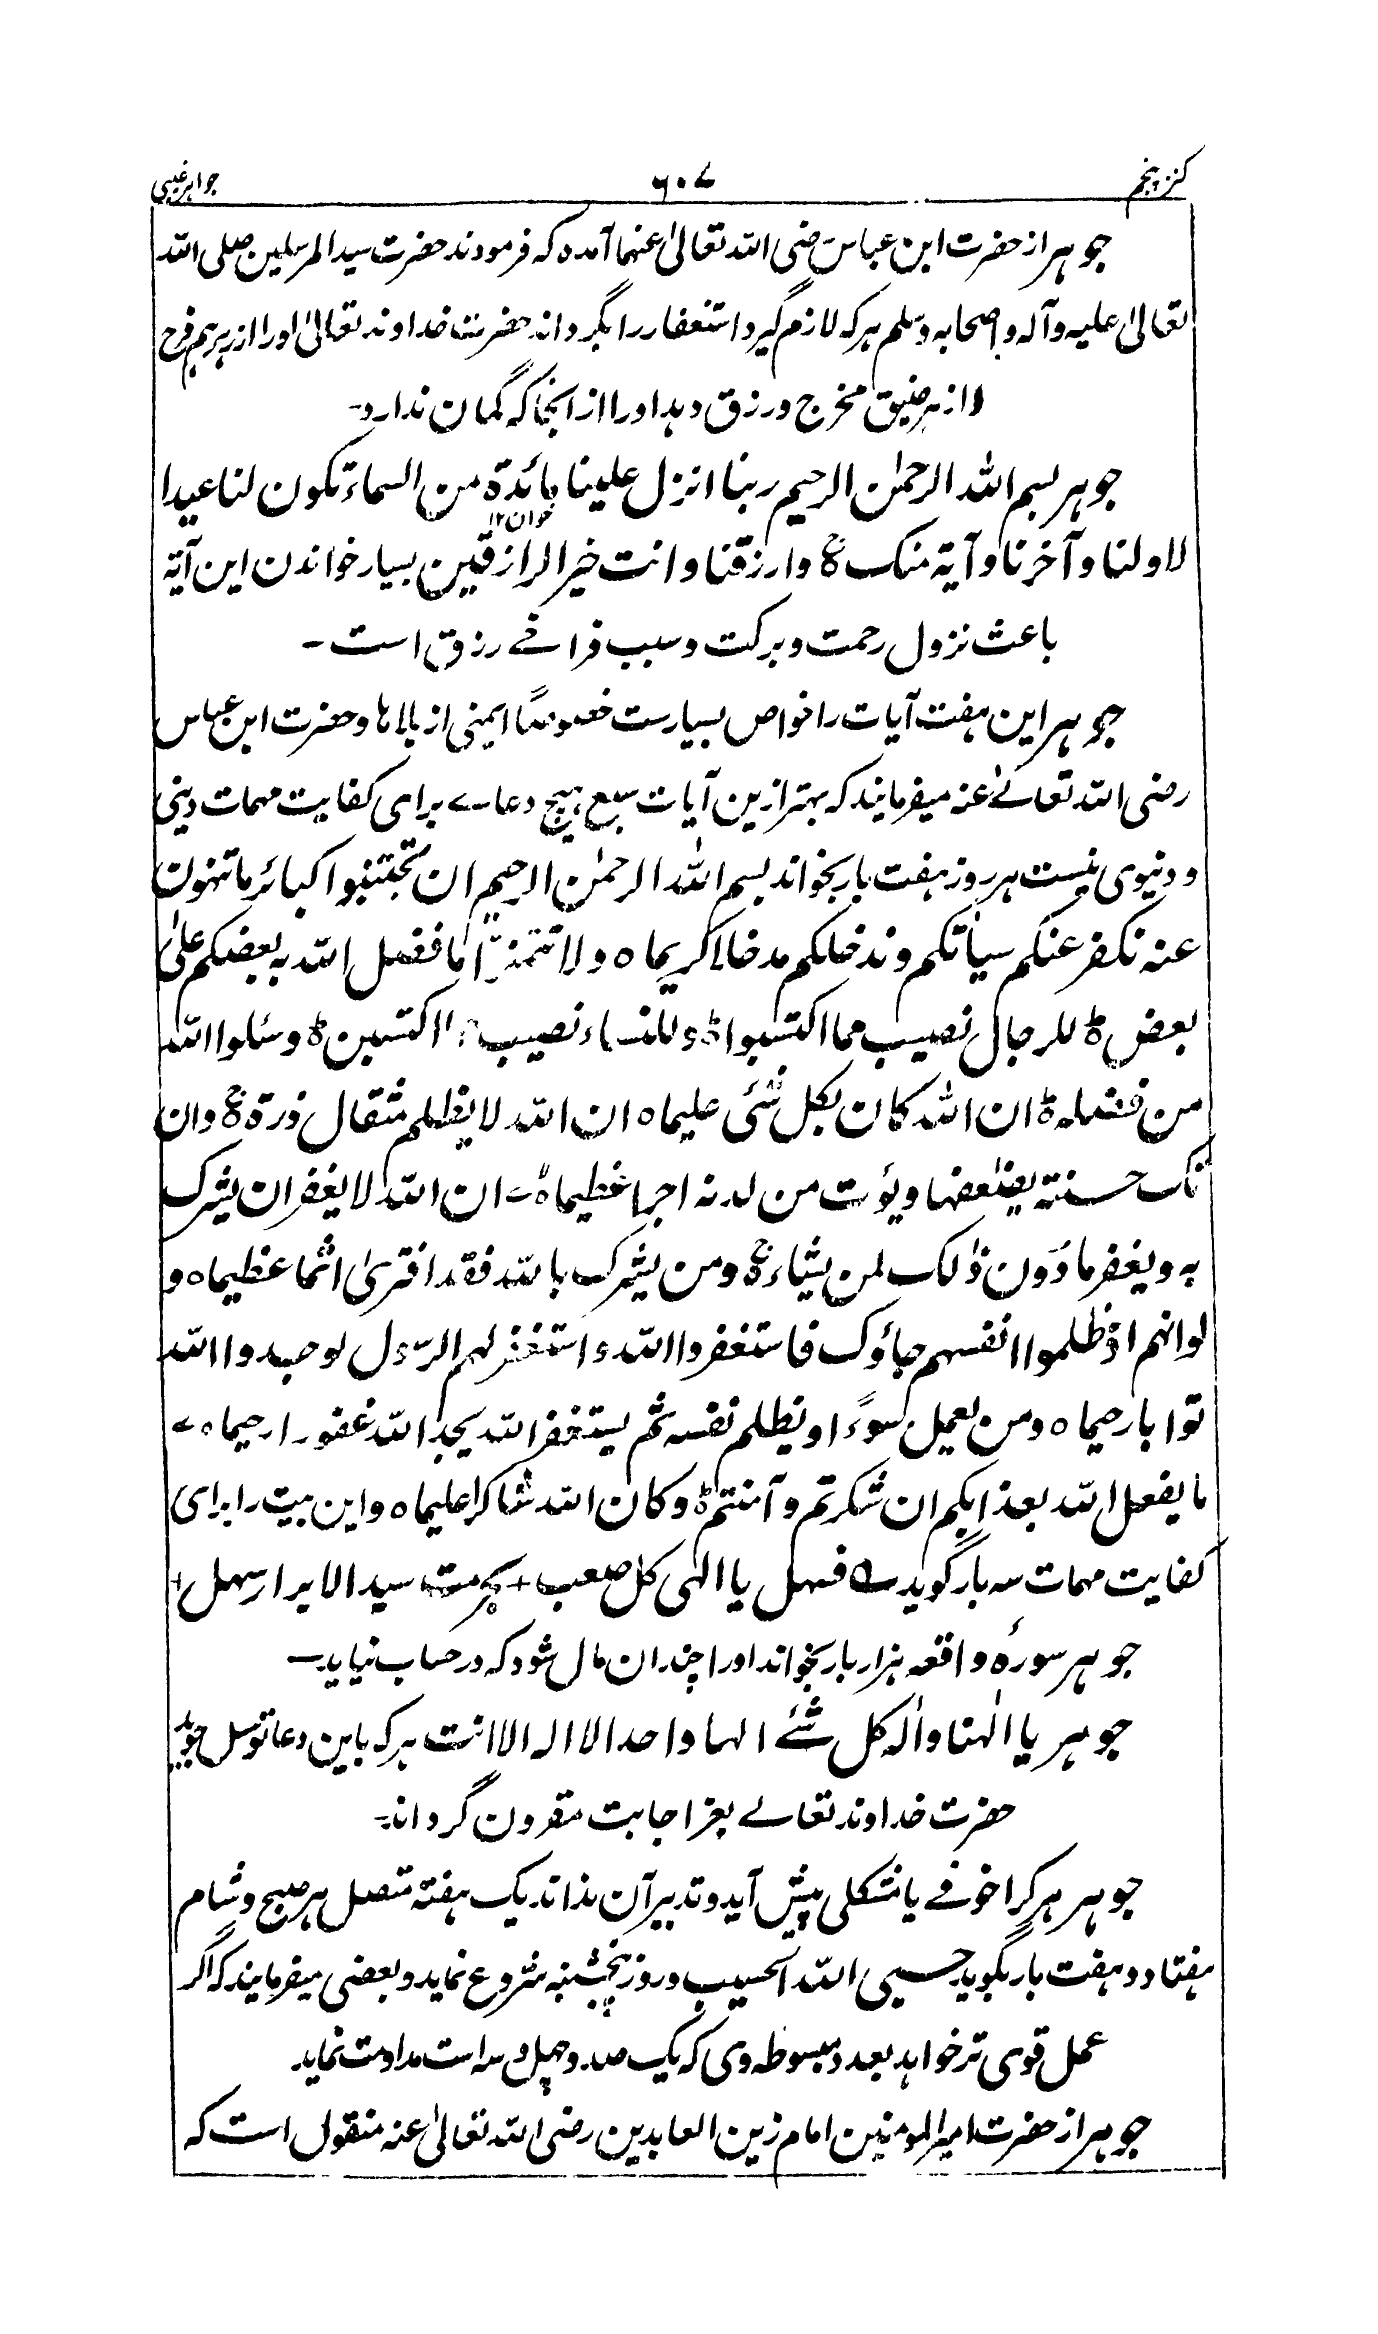 کنز پنجم
۶۰۷
جواہر غیبی
جوہر از حضرت ابن عباس رضی اللہ تعالیٰ عنہما آمدہ کہ فرمودند حضرت سید المرسلین صلی اللہ
تعالیٰ علیہ وآلہ واصحابہ وسلم ہرکہ لازم گیرد استغفار را بگرداند حضرت خداوند تعالیٰ اورا از ہر ہم فرح
واز ہر ضیق مخرج ورزق دہد اورا از انجا کہ گمان ندارد۔
جوہر بسم اللہ الرحمٰن الرحیم ربنا انزل علینا مائدۃ من السماء تکون لنا عیدا
خوان ۱۲
لاولنا وآخرنا وآیۃ منک ج وارزقنا وانت خیر الرازقین بسیار خواندن این آیۃ
باعث نزول رحمت وبرکت وسبب فراخے رزق است۔
جوہر این ہفت آیات را خواص بسیارست خصوصًا ایمنی از بلاہا وحضرت ابن عباس
رضی اللہ تعالےٰ عنہ میفرمایند کہ بہتر ازین آیات سبع ہیچ دعاے برای کفایت مہمات دینی
ودنیوی نیست ہر روز ہفت بار بخواند بسم اللہ الرحمٰن الرحیم ان تجتنبوا کبائر ما تنہون
عنہ نکفر عنکم سیاٰتکم وندخلکم مدخلا کریما ہ ولا تتمنوا ما فضل اللہ بہ بعضکم علیٰ
بعض ط للرجال نصیب مما اکتسبوا ط وللنساء نصیب مما اکتسبن ط وسئلوا اللہ
من فضلہ ط ان اللہ کان بکل شئی علیما ہ ان اللہ لا یظلم مثقال ذرۃ ج وان
تک حسنۃ یضٰعفہا ویؤت من لدنہ اجرا عظیما ہ ان اللہ لا یغفر ان یشرک
بہ ویغفر ما دون ذٰلک لمن یشاء ج ومن یشرک باللہ فقد افتریٰ اثما عظیما ہ و
لو انہم اذ ظلموا انفسہم جاؤک فاستغفروا اللہ واستغفر لہم الرسول لوجدوا اللہ
توابا رحیما ہ ومن یعمل سوءً او یظلم نفسہ ثم یستغفر اللہ یجد اللہ غفورا رحیما ہ
ما یفعل اللہ بعذابکم ان شکرتم وآمنتم ط وکان اللہ شاکرا علیما ہ واین بیت را برای
کفایت مہمات سہ بار گوید ؎ فسہل یا الٰہی کل صعب + بحرمت سید الابرار سہل +
جوہر سورۂ واقعہ ہزار بار بخواند اورا چندان مال شود کہ در حساب نیاید۔
جوہر یا الٰہنا والٰہ کل شئے الہا واحدا لا الہ الا انت ہرکہ باین دعا توسل جوید
حضرت خداوند تعالے بعز اجابت مقرون گرداند۔
جوہر ہر کرا خوفے یا مشکلی پیش آید وتدبیر آن نداند یک ہفتہ متصل ہر صبح وشام
ہفتاد وہفت بار بگوید حسبی اللہ الحسیب وروز پنجشنبہ شروع نماید وبعضی میفرمایند کہ اگر
عمل قوی تر خواہد بعدد مبسوطہ وی کہ یک صد وچہل وسہ است مداومت نماید
جوہر از حضرت امیر المومنین امام زین العابدین رضی اللہ تعالیٰ عنہ منقول است کہ